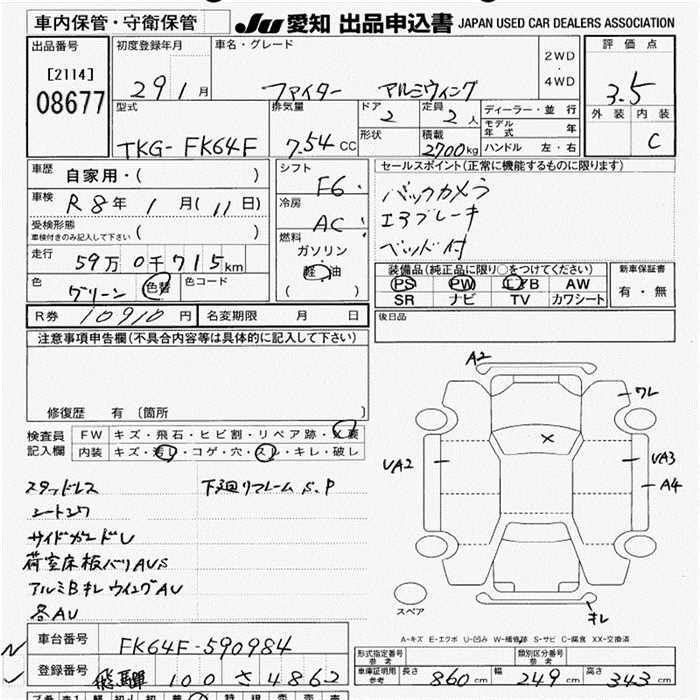 車内保管・守衛保管
JU 愛知 出品申込書 JAPAN USED CAR DEALERS ASSOCIATION
出品番号
[2114]
08677
初度登録年月
29 1 月
車名・グレード
ファイター アルミウィング
2WD
・
4WD
評価点
3.5
外装 内装
C
型式
TKG-FK64F
排気量
7.54 CC
ドア
2
形状
定員
2 人
積載
2700kg
ディーラー・並行
モデル年式 年
ハンドル 左・右
車歴 自家用・( )
車検 R8年 1月(11日)
受検形態
車検付きのみ記入して下さい ( )
走行 59万0千715km
色 グリーン 色替 色コード
シフト
F6
冷房
AC
燃料
ガソリン
・
軽油
( )
セールスポイント(正常に機能するものに限ります)
バックカメラ
エアブレーキ
ベッド付
装備品(純正品に限り○をつけてください)
PS PW エアB AW
SR ナビ TV カワシート
新車保証書
有・無
R券 10910円 名変期限 月 日
後日品
注意事項申告欄(不具合内容等は具体的に記入して下さい)
修復歴 有 〔箇所 〕
検査員記入欄
FW キズ・飛石・ヒビ割・リペア跡・
内装 キズ・汚れ・コゲ・穴・スレ・キレ・破レ
スタッドレス 下廻リフレームS.P
サイドガードU
荷室床板バリAUS
アルミBキレ ウイングAU
各AU
A2
ワレ
UA2
UA3
A4
キレ
スペア
A-キズ E-エクボ U-凹み W-補修跡 S-サビ C-腐食 XX-交換済
車台番号 FK64F-590984
登録番号 飛騨 100 さ 4862
形式指定番号
参考
類別区分番号
参考
車庫証明用
参考
長さ 860cm 幅 249cm 高さ 343cm